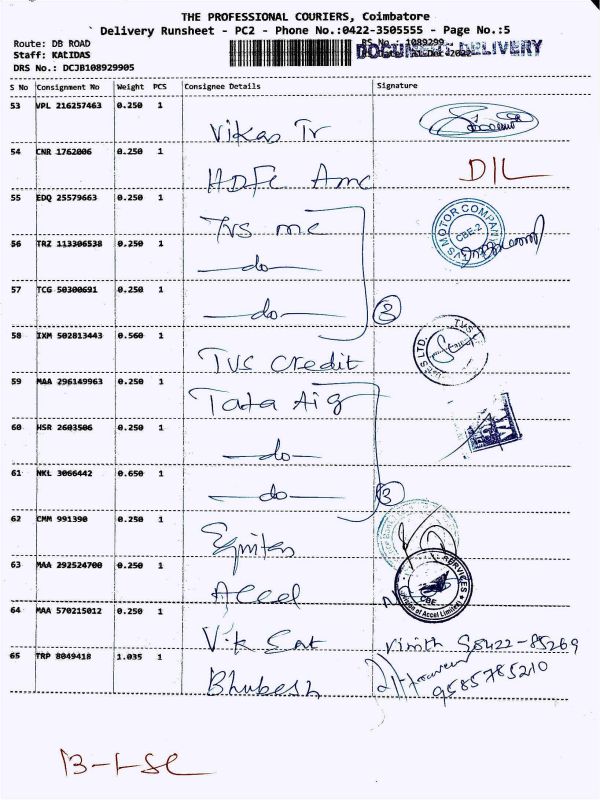 THE PROFESSIONAL COURIERS, Coimbatore
Delivery Runsheet - PC2 - Phone No.:0422-3505555 - Page No.:5
Route: DB ROAD
DOCUMENT DELIVERY
Staff: KALIDAS
DRS No.: DCJB108929905
S No Consignment No Weight PCS Consignee Details Signature
53 VPL 216257463 0.250 1
Vikas Tr
54 CNR 1762006 0.250 1
HDFC Amc D/L
55 EDQ 25579663 0.250 1
TVS mc TVS MOTOR COMPANY CBE-2
56 TRZ 113306538 0.250 1
do
57 TCG 50300691 0.250 1
do 3
58 IXM 502813443 0.560 1
TVS Credit
59 MAA 296149963 0.250 1
Tata Aig
60 HSR 2603506 0.250 1
do
61 NKL 3066442 0.650 1
do 3
62 CMM 991390 0.250 1
Equitas
63 MAA 292524700 0.250 1
Accel SERVICES CBE (Division of Accel Limited)
64 MAA 570215012 0.250 1
Vik Sat
65 TRP 8049418 1.035 1
Bhubesh 9585785210